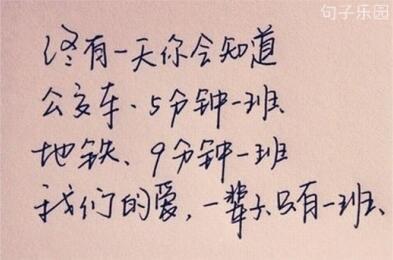 句子乐园
终有一天你会知道
公交车、5分钟一班、
地铁、9分钟一班
我们的爱，一辈子只有一班、